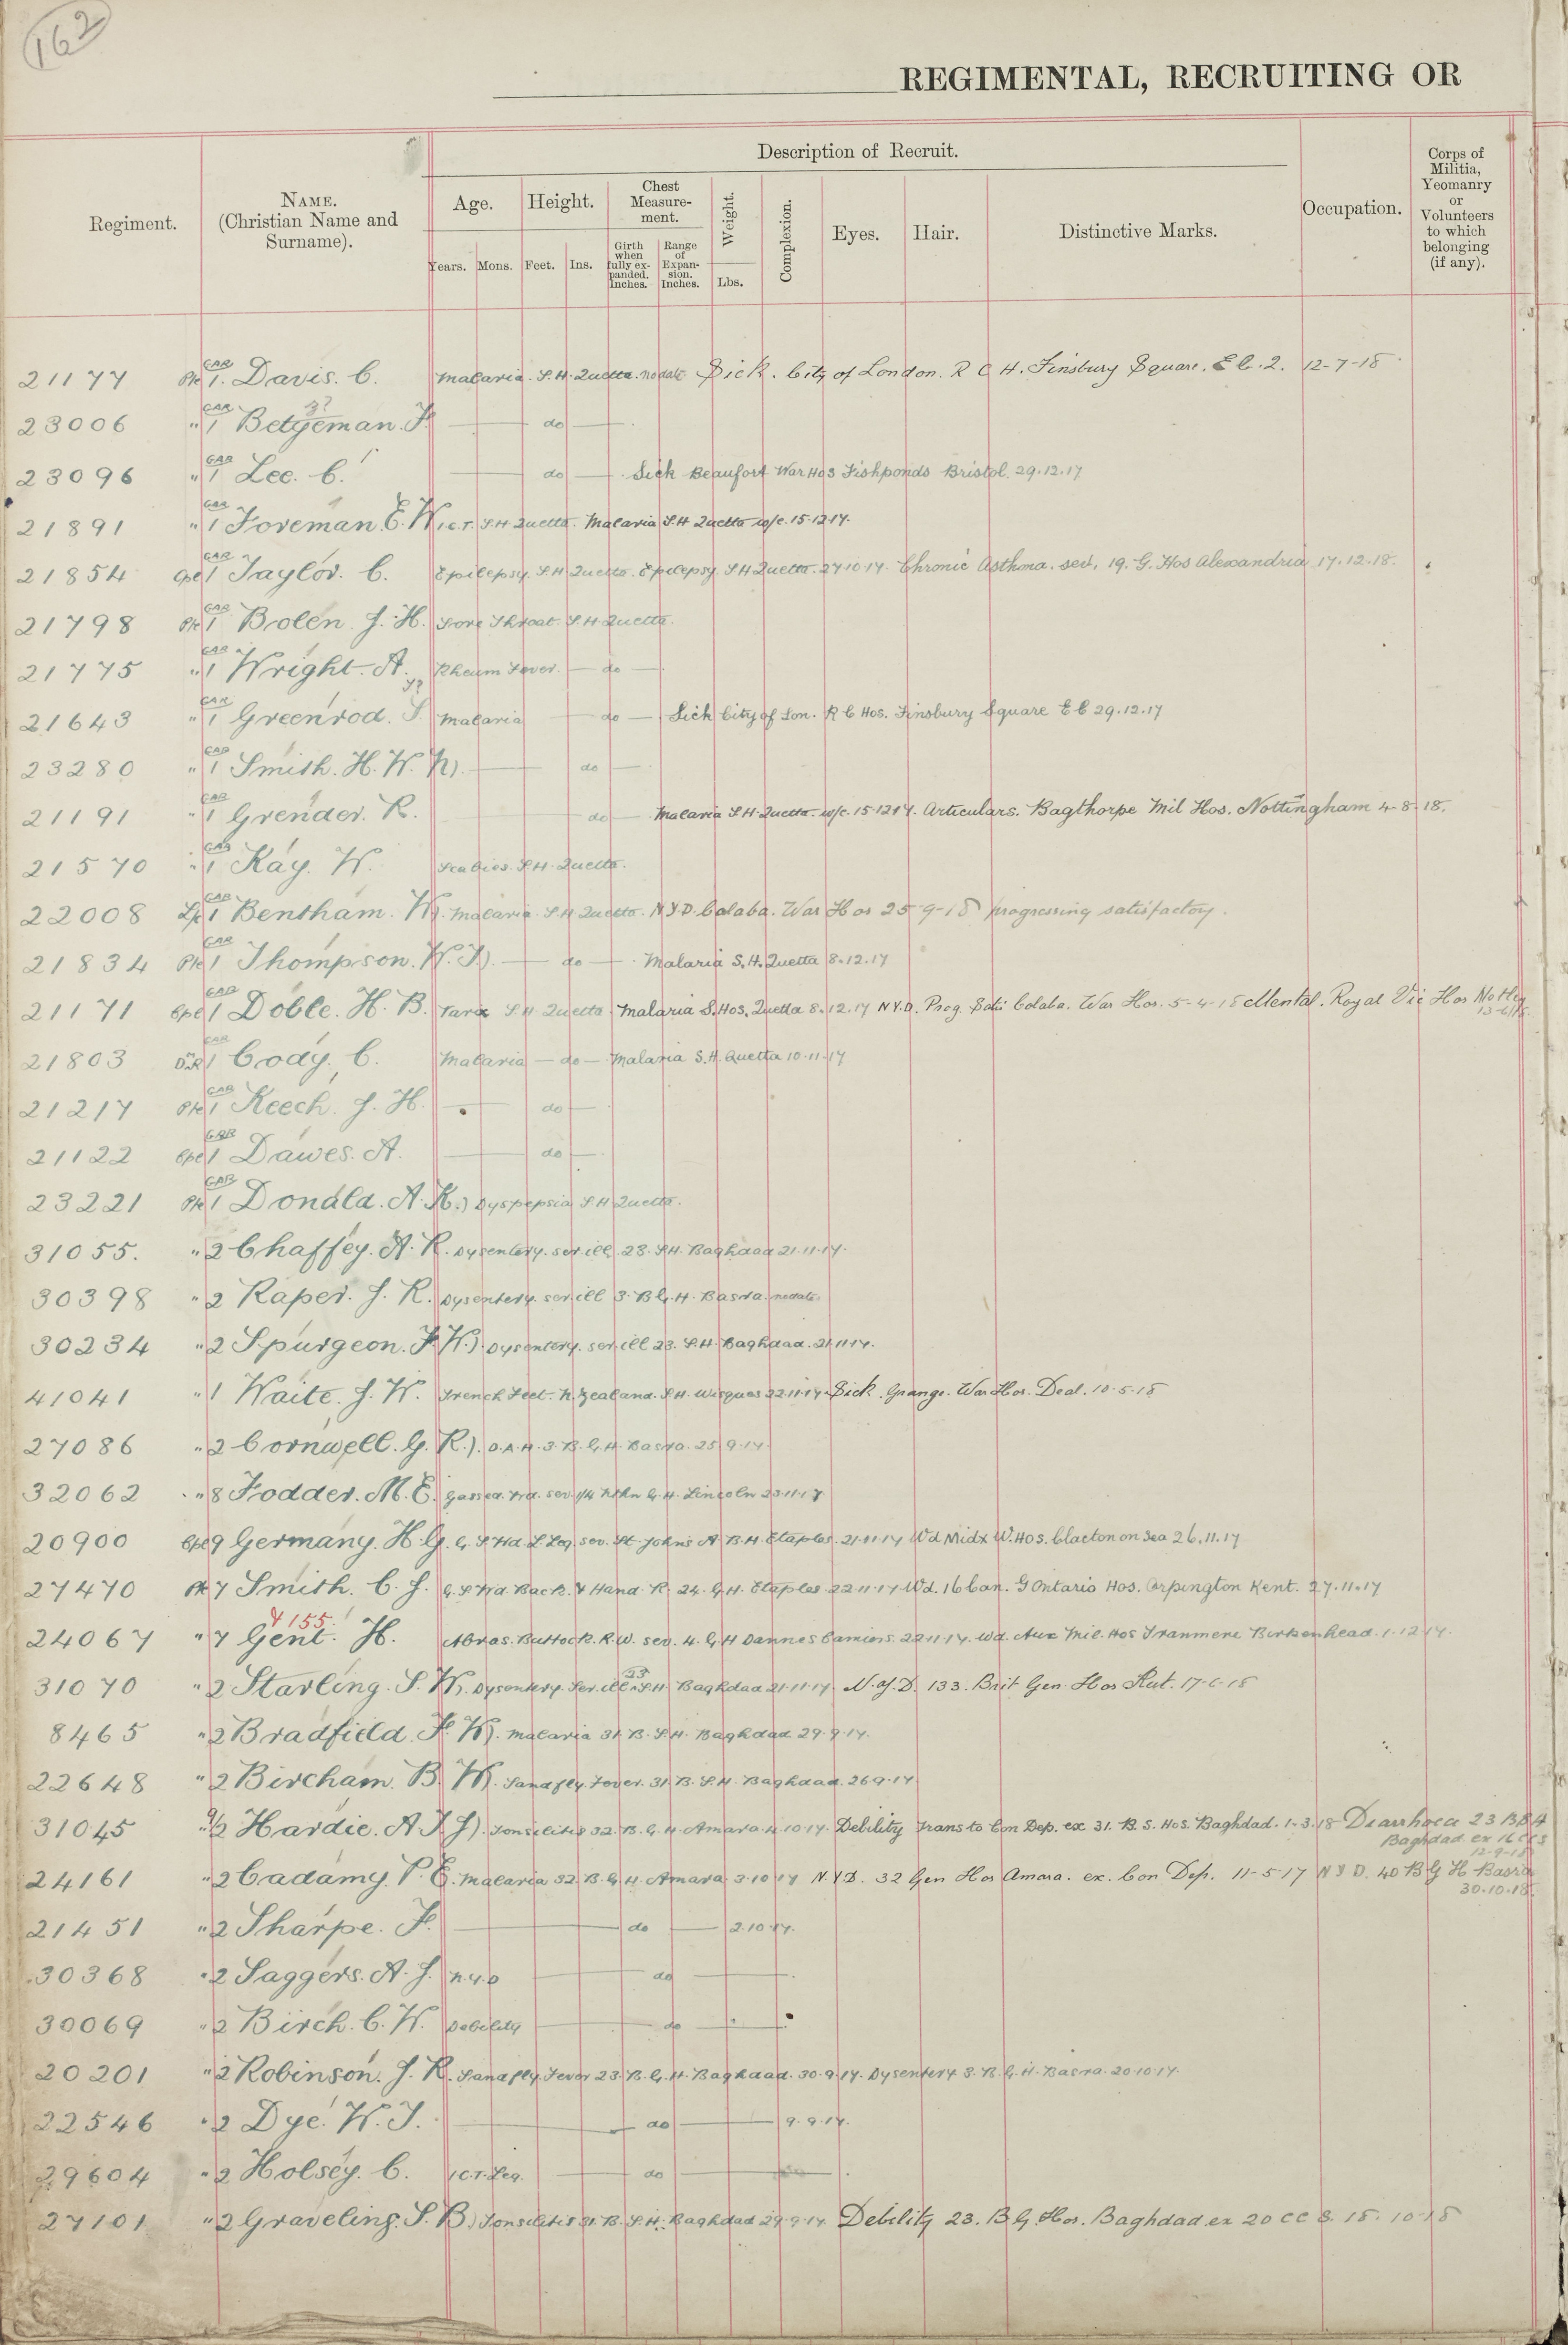 162
REGIMENTAL, RECRUITING OR
Description of Recruit.
Regiment.
NAME.
(Christian Name and
Surname).
Age.
Height.
Chest
Measure-
ment.
Weight.
Complexion.
Eyes.
Hair.
Distinctive Marks.
Occupation.
Corps of
Militia,
Yeomanry
or
Volunteers
to which
belonging
(if any).
Years.
Mons.
Feet.
Ins.
Girth
when
fully ex-
panded.
Inches.
Range
of
Expan-
sion.
Inches.
Lbs.
21177 Pte 1 GAR Davis. C. Malaria. S.H. Quetta. no date Sick. City of London. R C H. Finsbury Square. E C. 2. 12-7-18
23006 " 1 GAR Betgeman. F. do
23096 " 1 GAR Lee. C. do Sick Beaufort War Hos Fishponds Bristol. 29.12.17
21891 " 1 GAR Foreman. E. W. I.C.T. S.H Quetta. Malaria S.H Quetta w/e. 15.12.17.
21854 Cpl 1 GAR Taylor. C. Epilepsy. S.H Quetta. Epilepsy. S H Quetta. 27.10.17. Chronic Asthma. sev. 19. G. Hos Alexandria 17.12.18.
21798 Pte 1 GAR Bolen. J. H. Sore Throat. S.H. Quetta.
21775 " 1 GAR Wright. A. Rheum Fever. do
21643 " 1 GAR Greenrod. S. Malaria do Sick City of Lon. R C Hos. Finsbury Square E C 29.12.17
23280 " 1 GAR Smith. H. W. do
21191 " 1 GAR Grender. R. do Malaria S.H. Quetta. w/e. 15.12.17. Articulars. Bagthorpe Mil Hos. Nottingham 4-8-18.
21570 " 1 GAR Kay. W. Scabies. S.H. Quetta.
22008 1 GAR Bentham. W. Malaria. S.H Quetta. N.Y.D. Colaba. War Hos 25-9-18 progressing satisfactory.
21834 Pte 1 GAR Thompson. W. J. do Malaria S.H. Quetta 8.12.17
21171 Cpl 1 GAR Doble. H. B. S H Quetta Malaria S. Hos. Quetta 8.12.17 N.Y.D. Prog. Satis Colaba. War Hos. 5-4-18 Mental. Royal Vic Hos Netley
21803 1 GAR Cody. C. Malaria do Malaria S.H. Quetta 10.11.17
21217 Pte 1 GAR Keech. J. H. do
21122 Cpl 1 GAR Dawes. A. do
23221 Pte 1 GAR Donald. A. K. Dyspepsia S H Quetta.
31055. " 2 Chaffey. A. R. Dysentery. ser ill. 23. S.H. Baghdad 21.11.17.
30398 " 2 Raper. J. R. Dysentery. ser ill 3. B.G.H. Basra. no date.
30234 " 2 Spurgeon. F. W. Dysentery. ser ill 23. S.H. Baghdad. 21.11.17.
41041 " 1 Waite. J. W. Trench Feet. N. Zealand. S.H. Wisques 22.11.17. Sick. Grange. War Hos. Deal. 10-5-18
27086 " 2 Cornwell. G. R. D.A.H. 3. B. G. H. Basra. 25.9.17.
32062 " 8 Fodder. M. E. Gassed. Wd. sev. 1/4 Nthn G. H. Lincoln 23.11.17
20900 Cpl 9 Germany. H. G. G.S. Wd. L Leg. sev. St. Johns A. B.H. Etaples. 21.11.17 Wd Midx W. Hos. Clacton on Sea 26.11.17
27470 Pte 7 Smith. C. J. G.S Wd. Back. & Hand. R. 24. G.H. Etaples 22.11.17 Wd. 16 Can. G Ontario Hos. Orpington Kent. 27.11.17
4155
24067 " 7 Gent. H. Abras. Buttock. R.W. sev. 4. G.H Dannes Camiers. 22.11.17. Wd. Aux Mil. Hos Tranmere Birkenhead. 1.12.17.
31070 " 2 Starling. S. W. Dysentery. Ser. ill. 23 S.H. Baghdad 21.11.17. N.Y.D. 133. Brit Gen. Hos Kut. 17-6-18
8465 " 2 Bradfield. F. W. Malaria 31. B. S.H. Baghdad 29.9.17.
22648 " 2 Bircham. B. W. Sandfly. Fever. 31. B. S.H. Baghdad. 26.9.17
31045 " 2 Hardie. A. J. J. Tonsilitis 32. B. G. H. Amara. 4.10.17. Debility Trans to Con Dep. ex 31. B. S. Hos. Baghdad. 1-3-18 Diarrhoea 23 B.G.H
Baghdad ex 16 CCS
12-9-18
24161 " 2 Cadamy. P. E. Malaria 32. B. G H. Amara 3.10.17 N.Y.D. 32 Gen Hos Amara. ex. Con Dep. 11-5-17 N Y D. 40 B G H Basra
30.10.18.
21451 " 2 Sharpe. F. do 2.10.17.
30368 " 2 Saggers. A. J. N.Y.D do
30069 " 2 Birch. C. W. Debility do
20201 " 2 Robinson. J. R. Sandfly Fever 23. B. G. H. Baghdad. 30.9.17. Dysentery 3. B. G. H. Basra. 20.10.17.
22546 " 2 Dye. W. J. do 9.9.17.
29604 " 2 Holsey. C. I.C.T. Leg. do
27101 " 2 Graveling. S. B. Tonsilitis 31. B. S.H. Baghdad 29.9.17. Debility 23. B G. Hos. Baghdad. ex 20 CC S. 15.10.18